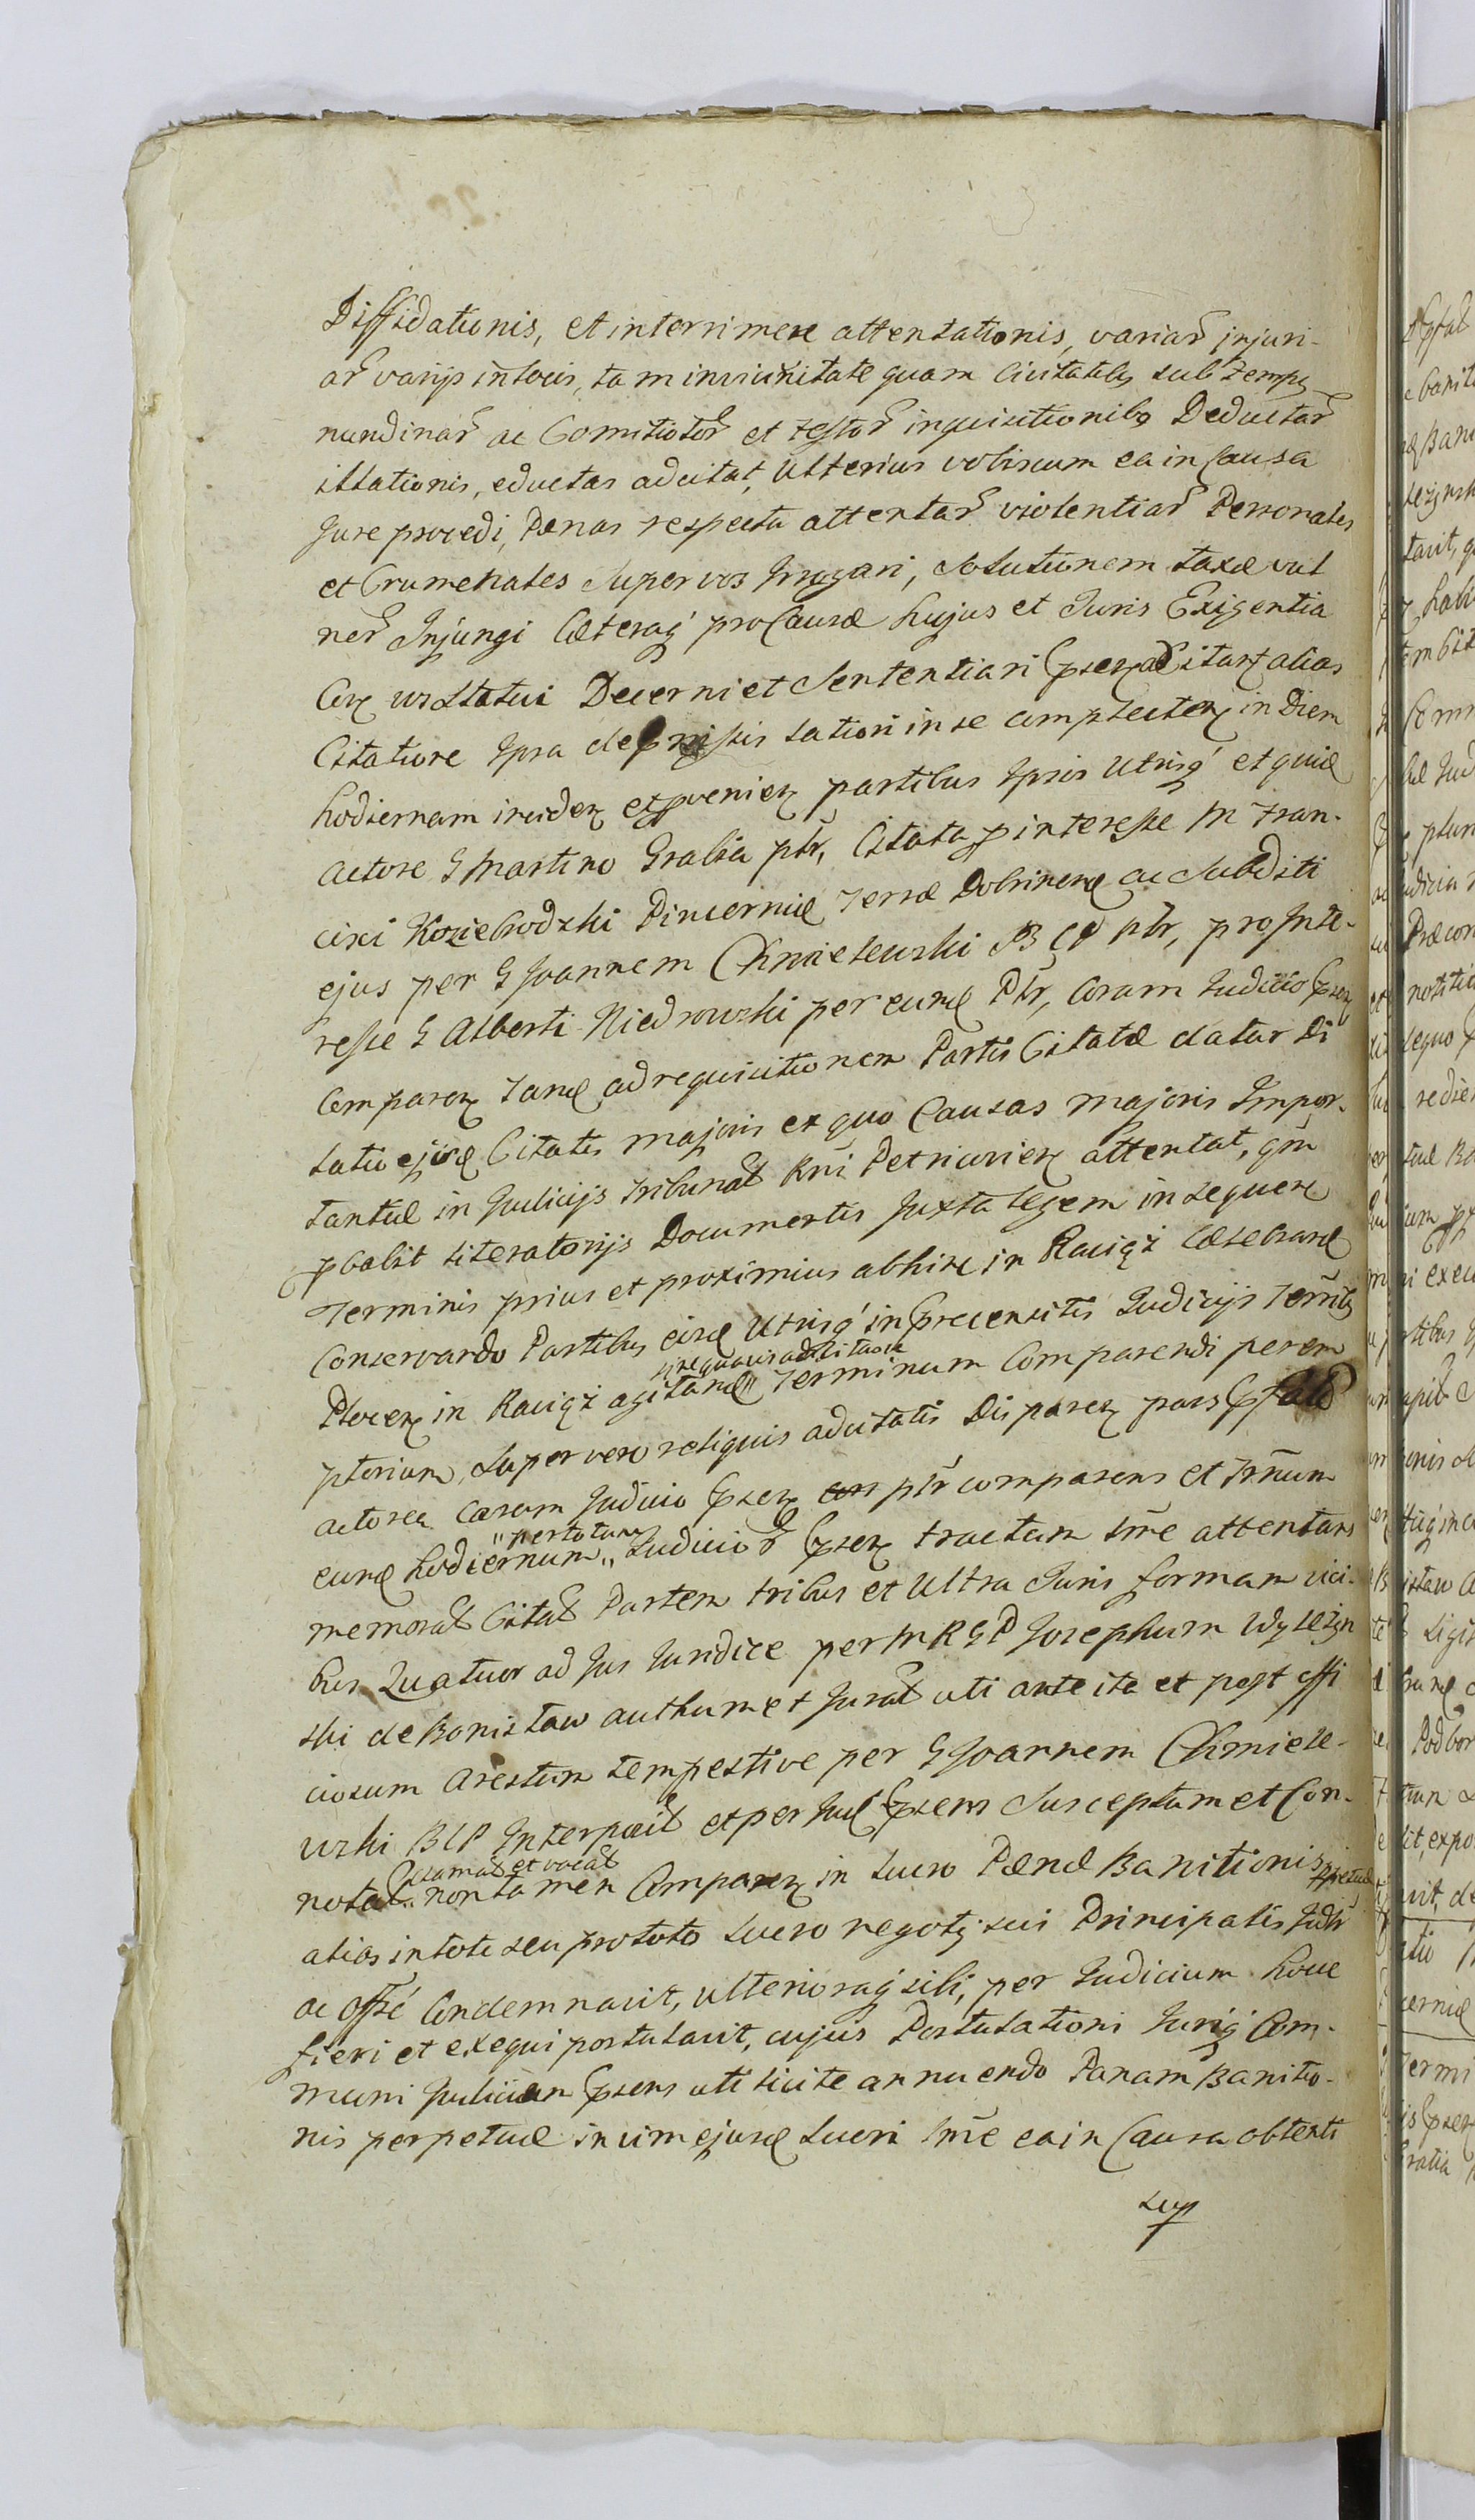 Diffidationis, et interrimere attentationis, variar injuri-
ar varijs in locis, tam in vicinitate quam Civitatibs sub temps
nundinar ac Comitiotor et testor inquisitionibs Deductar
illationis, eductas adcitat, Ulterius vobiscum ea in Causa
Jure procedi, Pænas respectu attentar violentiar Personales
et Crumenales super vos Irrogari, solutionem taxæ vul
ner Injungi Cæteraq pro Causæ hujus et Juris Exigentia
Statui Decerni et Sententiari adcitan alias
Citatione Ipsa de præmissis latiori in se complecten in Diem
hodiernam inciden et pvenien partibus Ipsis Utrisq et quid
actore G Martino Gralia ptr, Citata p interesse M Fran-
cisci Koziebrodzki Pincernid Terræ Dobrinen ac Subditi
ejus per G Joannem Chmielewski B C P ptr, pro Inte-
resse G Alberti Niedrowski per eund Ptr, Coram Judicio psen
Comparen Tand ad requisitionem Partis Citatæ datur Di
latio ejusd Citatis majoris ex quo Causas majoris Impor-
tantiæ in Judicijs Tribunal Rni Petricovien attentat, qm
pbabit literatorijs Documentis Juxta legem in sequen
Terminis prius et proximius abhinc in Raciąż Celebrand
Conservando Partibus eisd Utrisq in precensitis Judicijs Terrtbs
sine quavis adcitaone
Plocen in Raciąż agitand Terminum Comparendi perem
ptorium, super vero reliquis adcitatis Disparen pars
actorea coram Judicio psen ptr comparens et Trnum
"per totum
eund hodiernum" Judicior psen tractum Ime attentans
memorat Citat Partem tribus et Ultra Juris formam vici-
bus Quatuor ad Jus Juridice per M R G P Josephum Wyleżyn
ski de Bonislaw authum et Jurat uti ante ita et post offi
ciosum Arestum tempestive per G Joannem Chmiele-
wski B C P Interposit et per Jud psens Susceptum et Con-
Clamat et vocat
notat" non tamen Comparen in Lucro Pænæ Banitionis ppetuæ
alias in toto seu pro toto Lucro negotij sui Principalis Judr
ac offsé Condemnavit, ulterioraq sibi, per Judicium hocce
fieri et exequi postulavit, cujus Postulationi Jurisq Com-
muni Judicium psens uti licite annuendo Pænam Banitio-
nis perpetuæ in vim ejusd Lucri Ime ea in Causa obtenti
sup